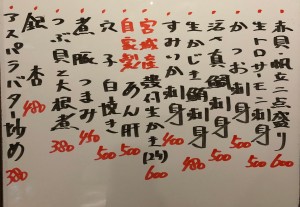 赤貝・帆立二点盛り 600
生トロサーモン刺身 500
かつお刺身 500
活〆真鯛刺身 500
生かじき鮪刺身 480
すみいか刺身 400
宮城産殻付生かき(2ヶ) 600
自家製あん肝 500
穴子白焼き 500
煮豚つまみ 450
つぶ貝と大根煮 380
銀杏 480
アスパラバター炒め 380